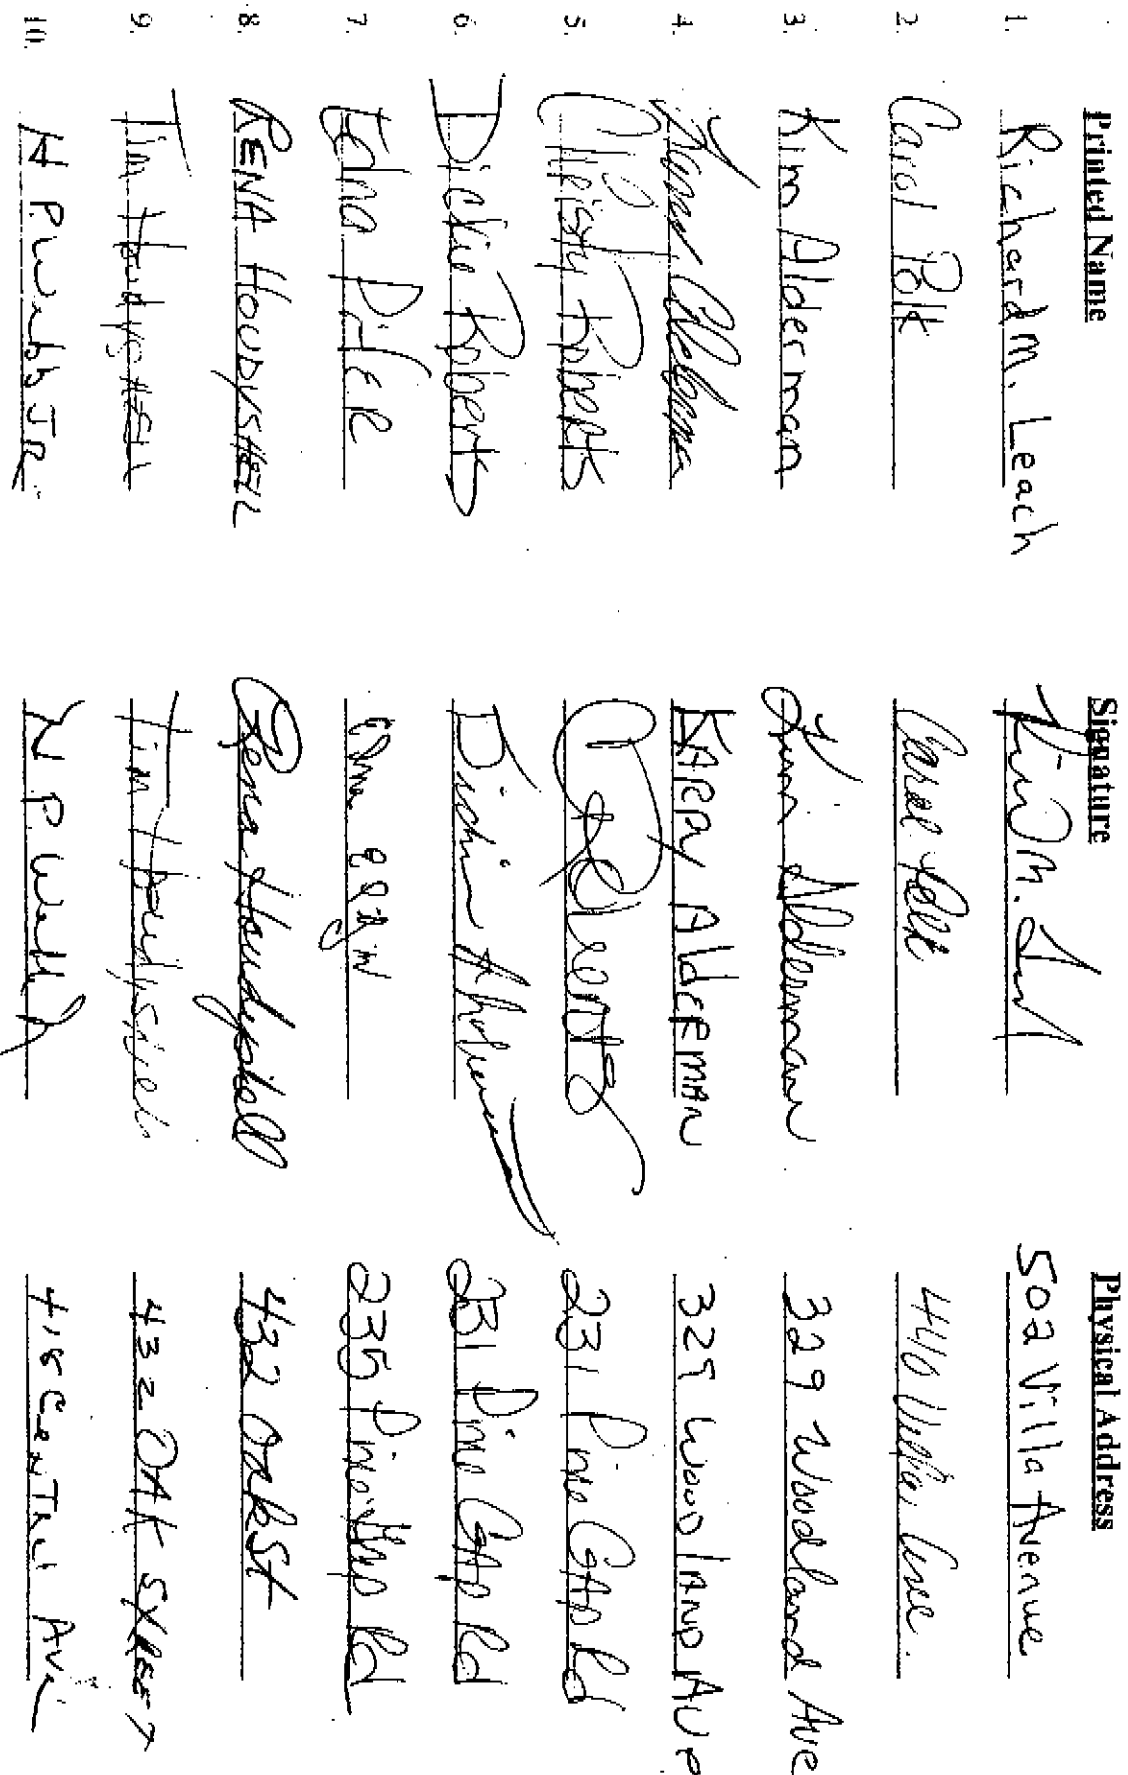 Printed Name Signature Physical Address
1. Richard M. Leach 502 Villa Avenue
2. Carol Polk Carol Polk 410 Villa Ave.
3. Kim Alderman Kim Alderman 329 Woodland Ave
4. Alderman KAREN AldERMAN 329 WoodlAND AVE
5. Christy Roberts Roberts 231 Pine GAP Rd
6. Dickie Roberts Dickie A Roberts 231 Pine GAP Rd
7. Edna 235 Pine GAP Rd
8. RENA HOUDYSHELL Rena Houdyshell 432 Oak St
9. Tim Houdyshell Tim Houdyshell 432 OAK STREET
10. N P Webb JR. N P Webb 418 CENTRAL Ave